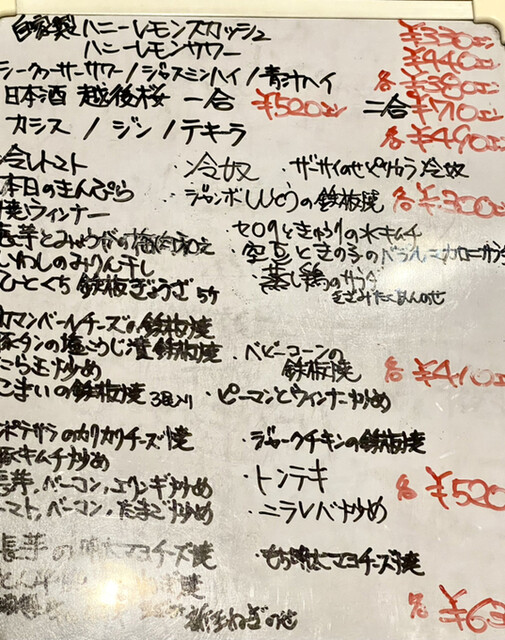 自家製ハニーレモンスカッシュ ¥330
ハニーレモンサワー ¥440
シークヮーサーサワー/ジャスミンハイ/青汁ハイ 各¥380
日本酒 越後桜 一合 ¥520 二合 ¥710
カシス/ジン/テキーラ 各¥490
冷しトマト ・冷奴 ・ザーサイのせピリカラ冷奴
本日のきんぴら ・ジャンボししとうの鉄板焼 各¥300
焼ウィンナー セロリときゅうりの水キムチ
長芋とみょうがの梅肉和え ・空豆ときの子のバジルマカロニサラダ
いわしのみりん干し ・蒸し鶏のサラダ
ひとくち鉄板ぎょうざ5ケ きざみたくあんのせ
カマンベールチーズの鉄板焼
豚タンの塩こうじ漬鉄板焼 ・ベビーコーンの
にら玉炒め 鉄板焼 各¥410
こまいの鉄板焼 3尾入り ・ピーマンとウィンナー炒め
ポテサラのカリカリチーズ焼 ・ジャークチキンの鉄板焼
豚キムチ炒め ・トンテキ 各¥520
長芋,ベーコン,エリンギ炒め
トマト,ベーコン,たまご炒め ・ニラレバ炒め
長芋の明太マヨチーズ焼 ・もち明太マヨチーズ焼
ねぎのせ